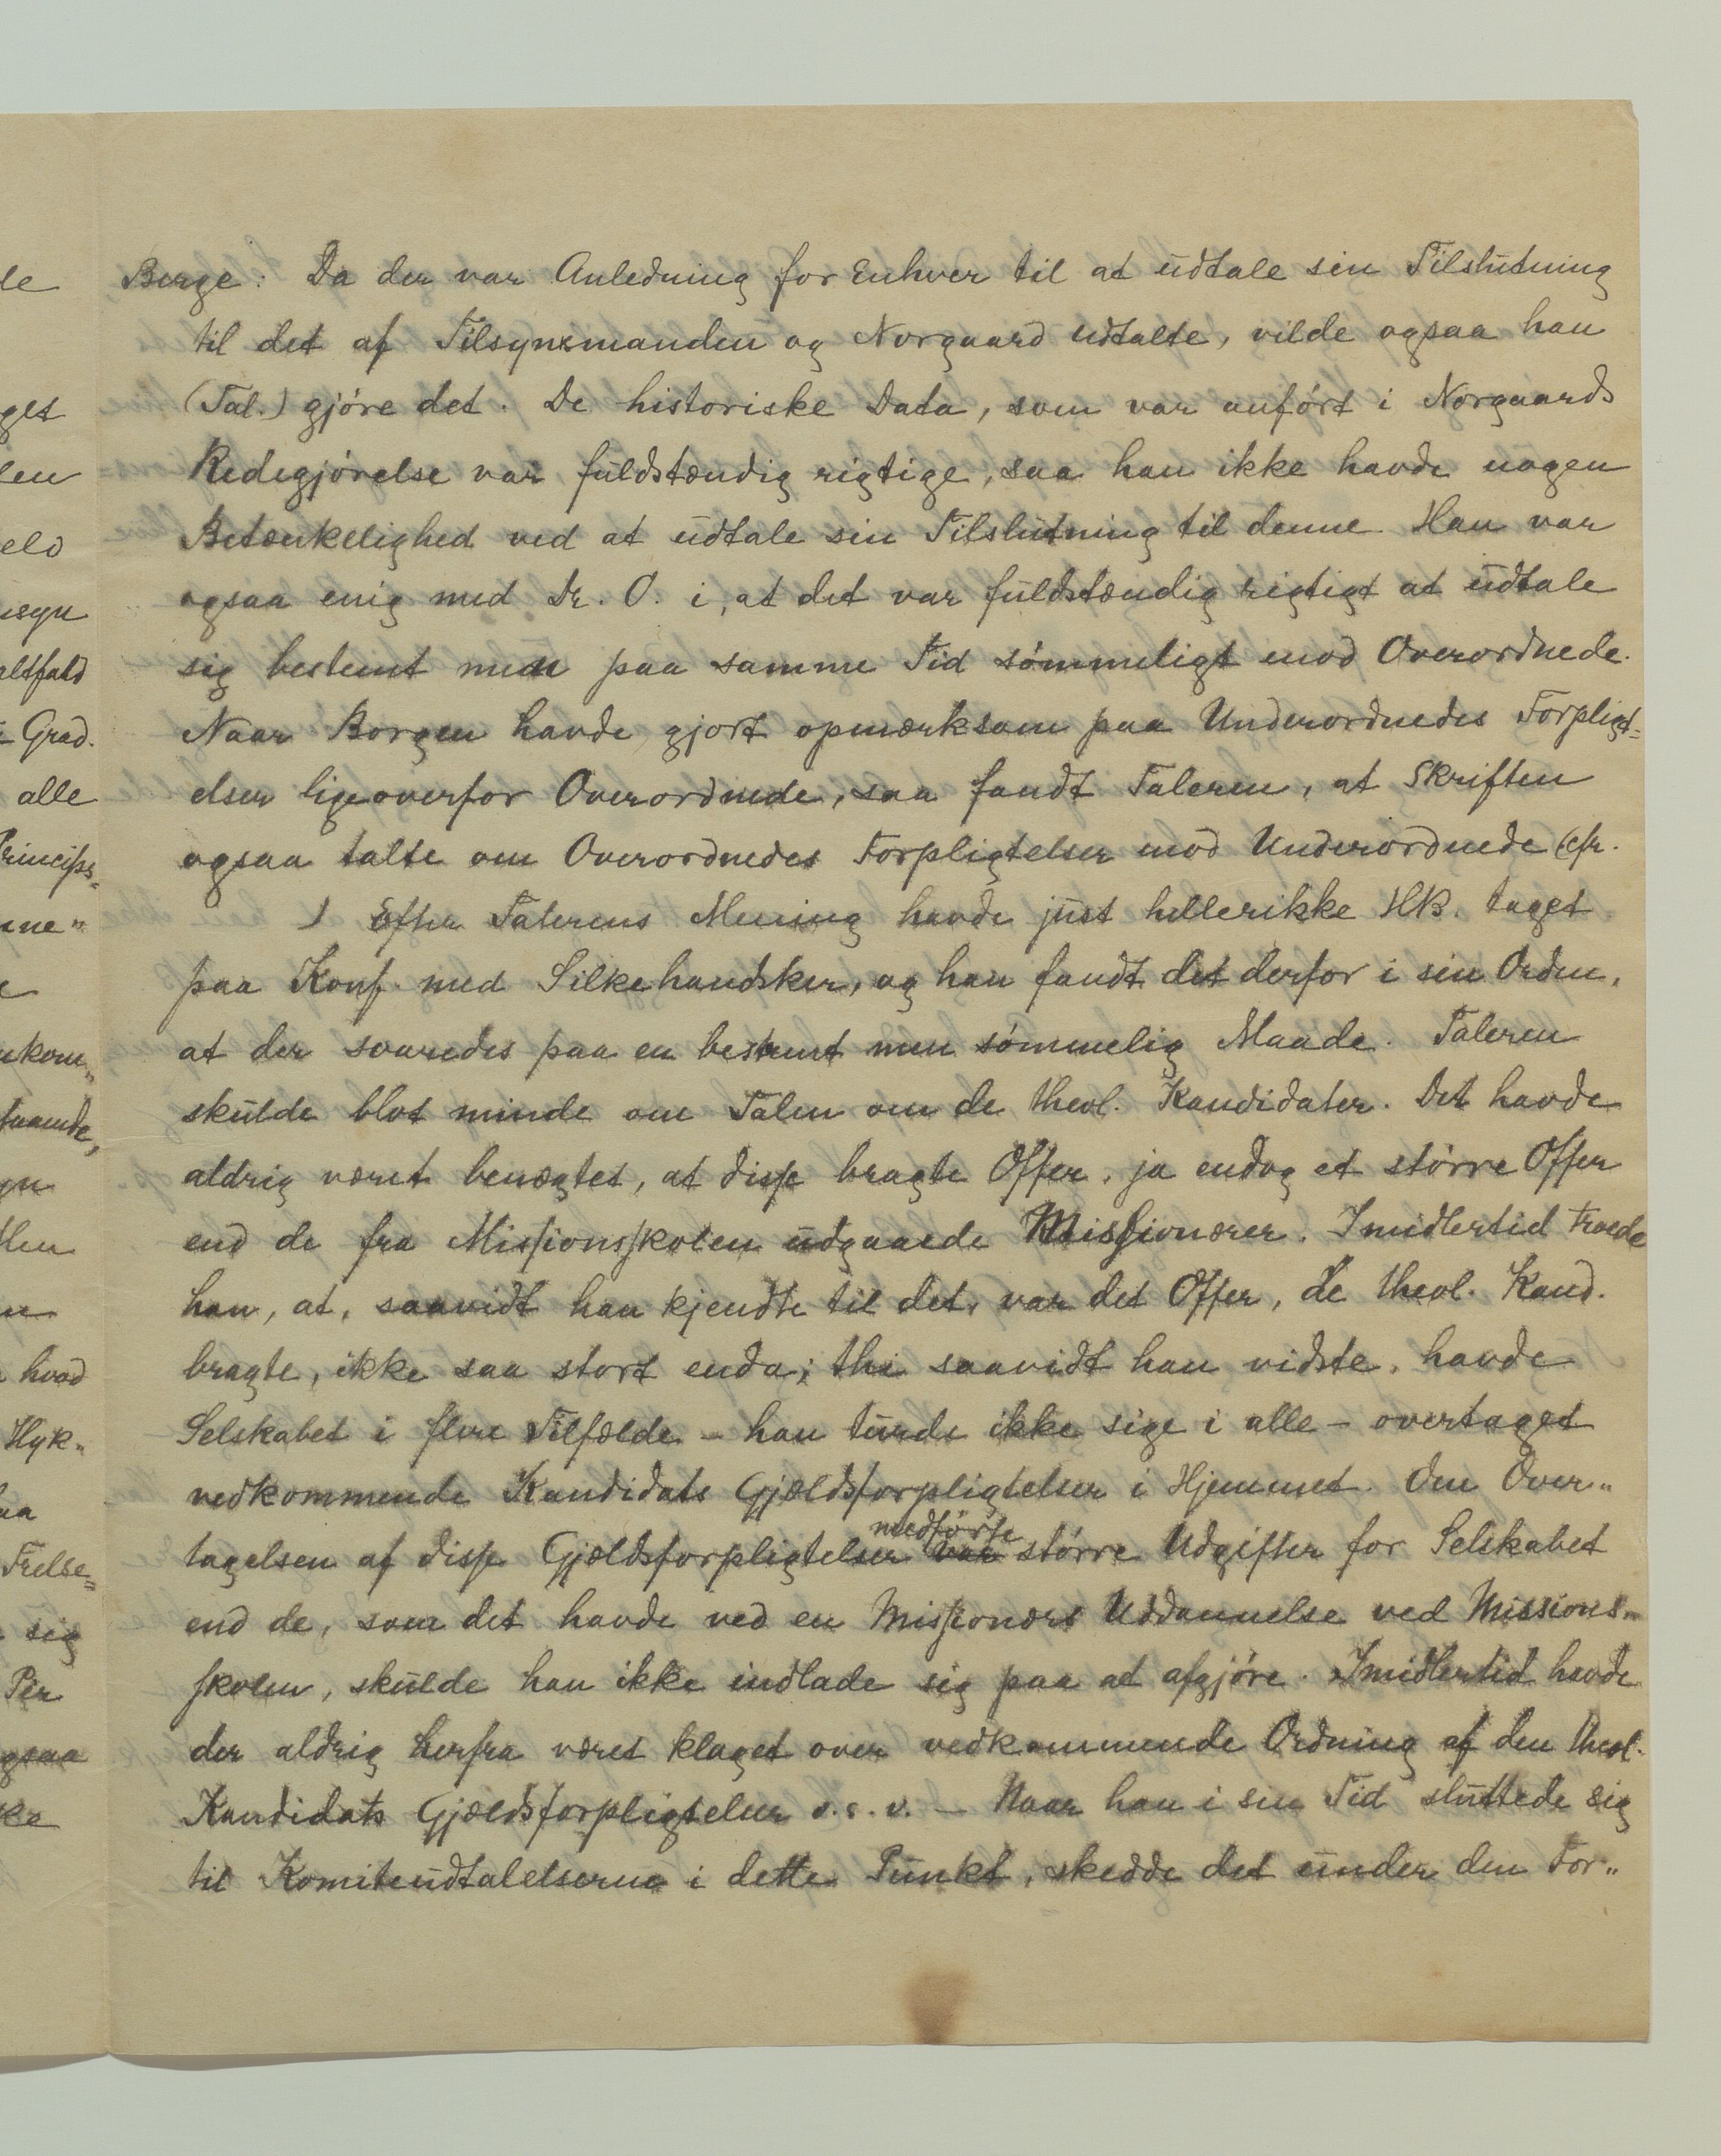 Berge: Da der var Anledning for Enhver til at udtale sin Tilslutning
til det af Tilsynsmanden og Norgaard udtalte, vilde ogsaa han
(Tal.) gjöre det. De historiske Data, som var anfört i Norgaards
Redegjörelse var fuldstændig rigtige, saa han ikke havde nogen
Betænkelighed ved at udtale sin Tilslutning til denne. Han var
ogsaa enig med Dr. O. i, at det var fuldstændig rigtigt at udtale
sig bestemt men paa samme Tid sömmeligt mod Overordnede.
Naar Borgen havde gjort opmærksom paa Underordnedes Forpligt=
elser ligeoverfor Overordnede, saa fandt Taleren, at Skriften
ogsaa talte om Overordnedes Forpligtelser mod Underordnede (cfr.
) Efter Talerens Mening havde just hellerikke HB. taget
paa Konf. med Silkehandsker, og han fandt det derfor i sin Orden,
at der svaredes paa en bestemt men sömmelig Maade. Taleren
skulde blot minde om Talen om de theol. Kandidater. Det havde
aldrig været benægtet, at disse bragte Offer, ja endog et större Offer
end de fra Missionsskolen udgaaede Missionærer. Imidlertid troede
han, at, saavidt han kjendte til det, var det Offer, de theol. Kand.
bragte, ikke saa stort enda; thi saavidt han vidste, havde
Selskabet i flere Tilfælde – han turde ikke sige i alle – overtaget
vedkommende Kandidats Gjældsforpligtelser i Hjemmet. Om Over„
tagelsen af disse Gjældsforpligtelser var medförte större Udgifter for Selskabet
end de, som det havde ved en Missionærs Uddannelse ved Missions„
skolen, skulde han ikke indlade sig paa at afgjöre. Imidlertid havde
der aldrig herfra været klaget over vedkommende Ordning af den theol.
Kandidats Gjældsforpligtelser o. s. v. – Naar han i sin Tid sluttede sig
til Komiteudtalelserne i dette Punkt, skedde det under den For„